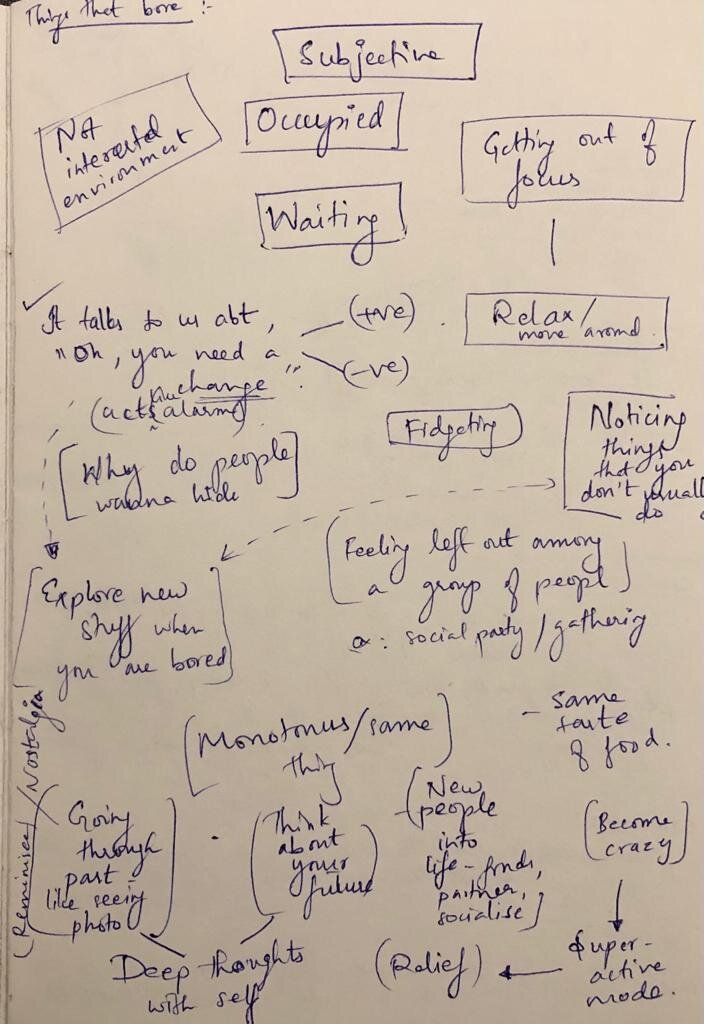 Things that bore :-
Subjective
Not
interested
environment
Occupied
Getting out of
focus
Waiting
It talks to us abt,
"Oh, you need a
change".
(acts alarm)
(+ve)
(-ve)
Relax/
move around.
Fidgeting
Noticing
things
that you
don't usually
do
[Why do people
wanna hide]
(Feeling left out among
a group of people)
social party/gathering
[Explore new
stuff when
you are bored]
(Reminisce)/Nostalgia
(Monotonus/same
thing)
- same
taste
of food.
(Going
through
past -
like seeing
photo)
(Think
about
your
future)
Deep thoughts
with self
(New
people
into
life - frnds,
partner,
socialise)
(Become
crazy)
Super-
active
mode.
(Relief)